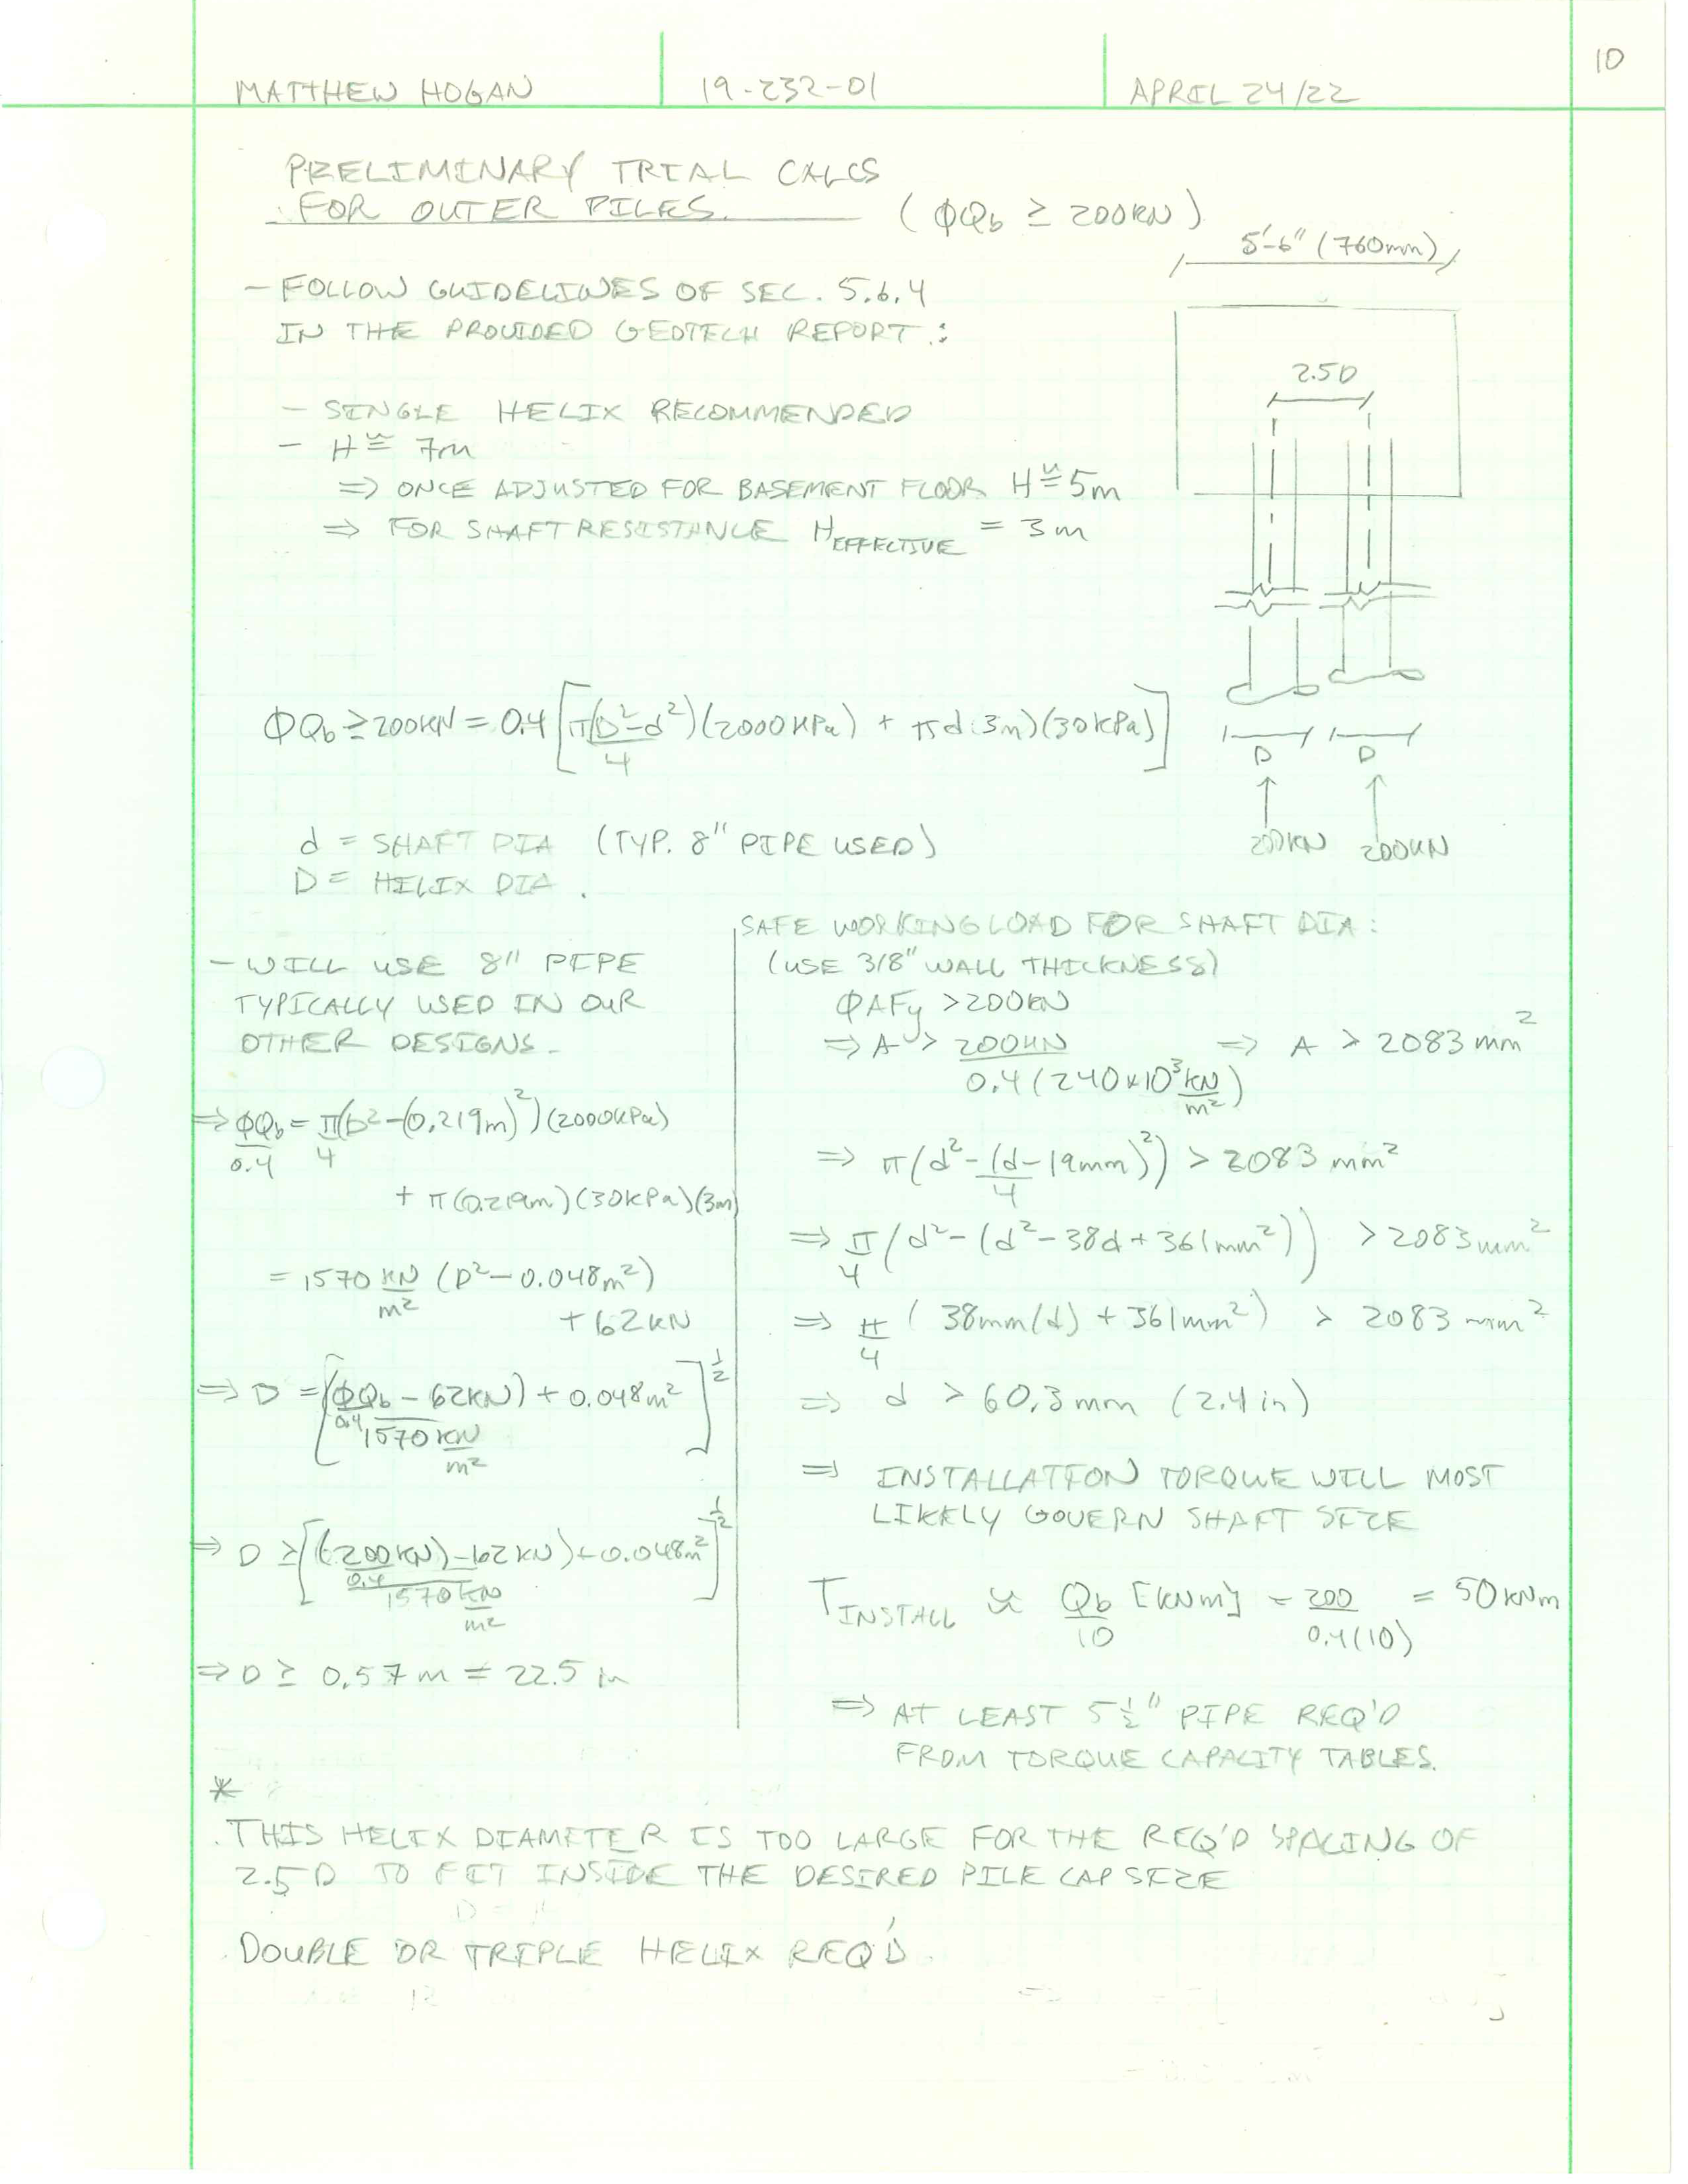 10
MATTHEW HOGAN 19-232-01 APRIL 24/22
PRELIMINARY TRIAL CALCS
FOR OUTER PILES. (ΦQb ≥ 200KN)
5'-6" (760mm)
- FOLLOW GUIDELINES OF SEC. 5.6.4
IN THE PROVIDED GEOTECH REPORT:
2.5D
- SINGLE HELIX RECOMMENDED
- H ≅ 7m
=> ONCE ADJUSTED FOR BASEMENT FLOOR H ≅ 5m
=> FOR SHAFT RESISTANCE H EFFECTIVE = 3m
ΦQb ≥ 200KN = 0.4 [π(D²-d²)/4 (2000KPa) + πd(3m)(30kPa)]
D D
200KN 200KN
d = SHAFT DIA (TYP. 8" PIPE USED)
D = HELIX DIA.
- WILL USE 8" PIPE
TYPICALLY USED IN OUR
OTHER DESIGNS.
=> ΦQb/0.4 = π/4(D²-(0.219m)²)(2000kPa)
+ π(0.219m)(30kPa)(3m)
= 1570 KN/m² (D² - 0.048m²)
+ 62KN
=> D = [(ΦQb/0.4 - 62KN)/1570 KN/m² + 0.048m²]^1/2
=> D ≥ [((200KN)/0.4 - 62KN)/1570 KN/m² + 0.048m²]^1/2
=> D ≥ 0.57m = 22.5 in
SAFE WORKING LOAD FOR SHAFT DIA:
(USE 3/8" WALL THICKNESS)
ΦAFy > 200KN
=> A > 200KN/0.4(240x10³ KN/m²) => A > 2083 mm²
=> π(d²-(d-19mm)²)/4 > 2083 mm²
=> π/4 (d²-(d²-38d+361mm²)) > 2083mm²
=> π/4 (38mm(d) + 361mm²) > 2083 mm²
=> d > 60.3mm (2.4in)
=> INSTALLATION TORQUE WILL MOST
LIKELY GOVERN SHAFT SIZE
T INSTALL ≈ Qb/10 [KNm] = 200/0.4(10) = 50KNm
=> AT LEAST 5 1/2" PIPE REQ'D
FROM TORQUE CAPACITY TABLES.
*
THIS HELIX DIAMETER IS TOO LARGE FOR THE REQ'D SPACING OF
2.5D TO FIT INSIDE THE DESIRED PILE CAP SIZE
DOUBLE OR TRIPLE HELIX REQ'D.